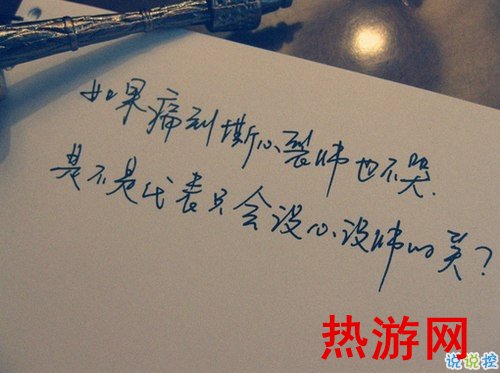 如果痛到撕心裂肺也不哭.
是不是代表只会没心没肺的笑?
热游网
说说控